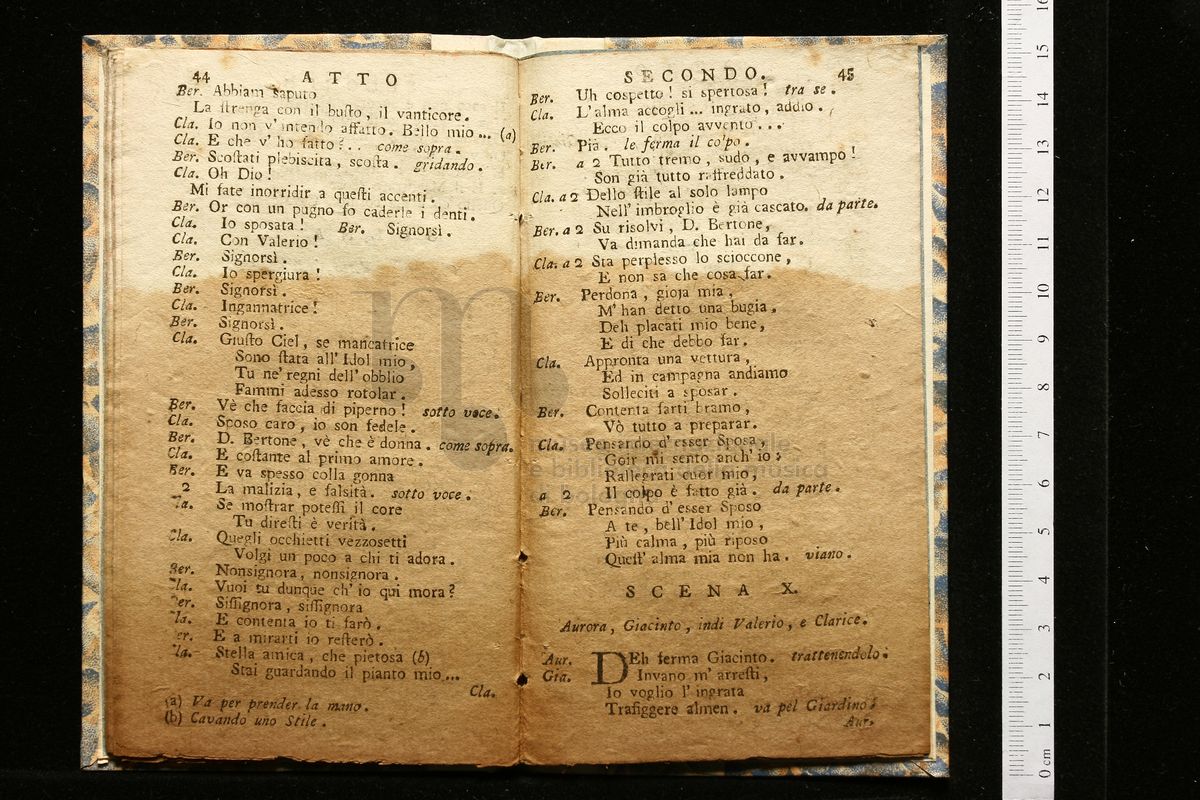 44 ATTO
Ber. Abbiam saputo
La strenga con il busto, il vanticore.
Cla. Io non v'intendo affatto. Bello mio... (a)
Cla. E che v'ho fatto?.. come sopra.
Ber. Scostati plebiscita, scosta. gridando.
Cla. Oh Dio!
Mi fate inorridir a questi accenti.
Ber. Or con un pugno fo caderle i denti.
Cla. Io sposata! Ber. Signorsì.
Cla. Con Valerio!
Ber. Signorsì.
Cla. Io spergiura!
Ber. Signorsì.
Cla. Ingannatrice!
Ber. Signorsì.
Cla. Giusto Ciel, se mancatrice
Sono stata all'Idol mio,
Tu ne' regni dell'obblio
Fammi adesso rotolar.
Ber. Vè che faccia di piperno! sotto voce.
Cla. Sposo caro, io son fedele.
Ber. D. Bertone, vè che è donna. come sopra.
Cla. E costante al primo amore.
Ber. E va spesso colla gonna
2 La malizia, e falsità. sotto voce.
Cla. Se mostrar potessi il core
Tu diresti è verità.
Cla. Quegli occhietti vezzosetti
Volgi un poco a chi ti adora.
Ber. Nonsignora, nonsignora.
Cla. Vuoi tu dunque ch'io qui mora?
Ber. Sissignora, sissignora
Cla. E contenta io ti farò.
Ber. E a mirarti io resterò.
Cla. Stella amica, che pietosa (b)
Stai guardando il pianto mio...
Cla.
(a) Va per prender la mano.
(b) Cavando uno Stile.
SECONDO. 45
Ber. Uh cospetto! si spertosa! tra se.
Cla. L'alma accogli... ingrato, addio.
Ecco il colpo avvento...
Ber. Pia. le ferma il colpo.
Ber. a 2 Tutto tremo, sudo, e avvampo!
Son già tutto raffreddato.
Cla. a 2 Dello stile al solo lampo
Nell'imbroglio è già cascato. da parte.
Ber. a 2 Su risolvi, D. Bertone,
Va dimanda che hai da far.
Cla. a 2 Sta perplesso lo scioccone,
E non sa che cosa far.
Ber. Perdona, gioja mia,
M'han detto una bugia,
Deh placati mio bene,
E di che debbo far.
Cla. Appronta una vettura,
Ed in campagna andiamo
Solleciti a sposar.
Ber. Contenta farti bramo,
Vò tutto a preparar.
Cla. Pensando d'esser Sposa,
Goir mi sento anch'io;
Rallegrati cuor mio,
a 2 Il colpo è fatto già. da parte.
Ber. Pensando d'esser Sposo
A te, bell'Idol mio,
Più calma, più riposo
Quest'alma mia non ha. viano.
SCENA X.
Aurora, Giacinto, indi Valerio, e Clarice.
Aur. DEh ferma Giacinto. trattenendolo.
Gia. Invano m'arresti,
Io voglio l'ingrata
Trafiggere almen. va pel Giardino.
Aur.
0 cm 1 2 3 4 5 6 7 8 9 10 11 12 13 14 15 16